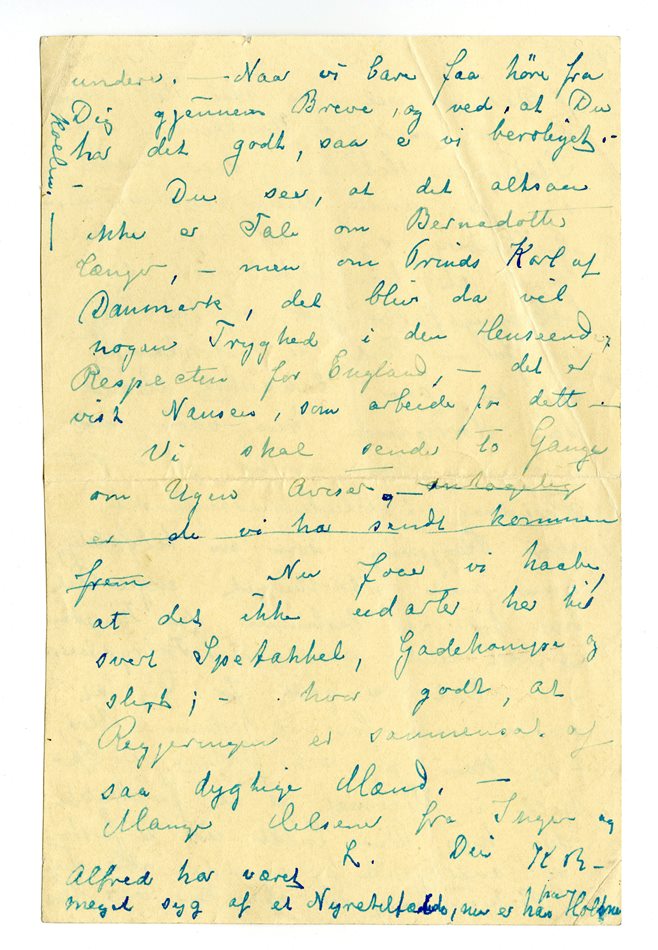 undere. — Naar vi bare faa høre fra
Dig gjennem Breve, og ved, at Du
har det godt, saa er vi beroliget. -
Du seer, at det altsaa
ikke er Tale om Bernadotter
længer, - men om Prinds Karl af
Danmark, det bliver da vel
nogen Tryghed i den Henseende,
Respecten for England, - det er
vist Nansen, som arbeide for dette -
Vi skal sende to Gange
om Ugen Aviser, - antagelig
er de vi har sendt kommen
frem Nu faar vi haabe,
at det ikke udarter her til
svert Spetakkel, Gadekampe og
sligt; - hvor godt, at
Regjeringen er sammensat af
saa dygtige Mænd. —
Mange Hilsener fra Inger og
L. Din
Alfred har været
meget syg af et Nyretilfælde, nu er han paa